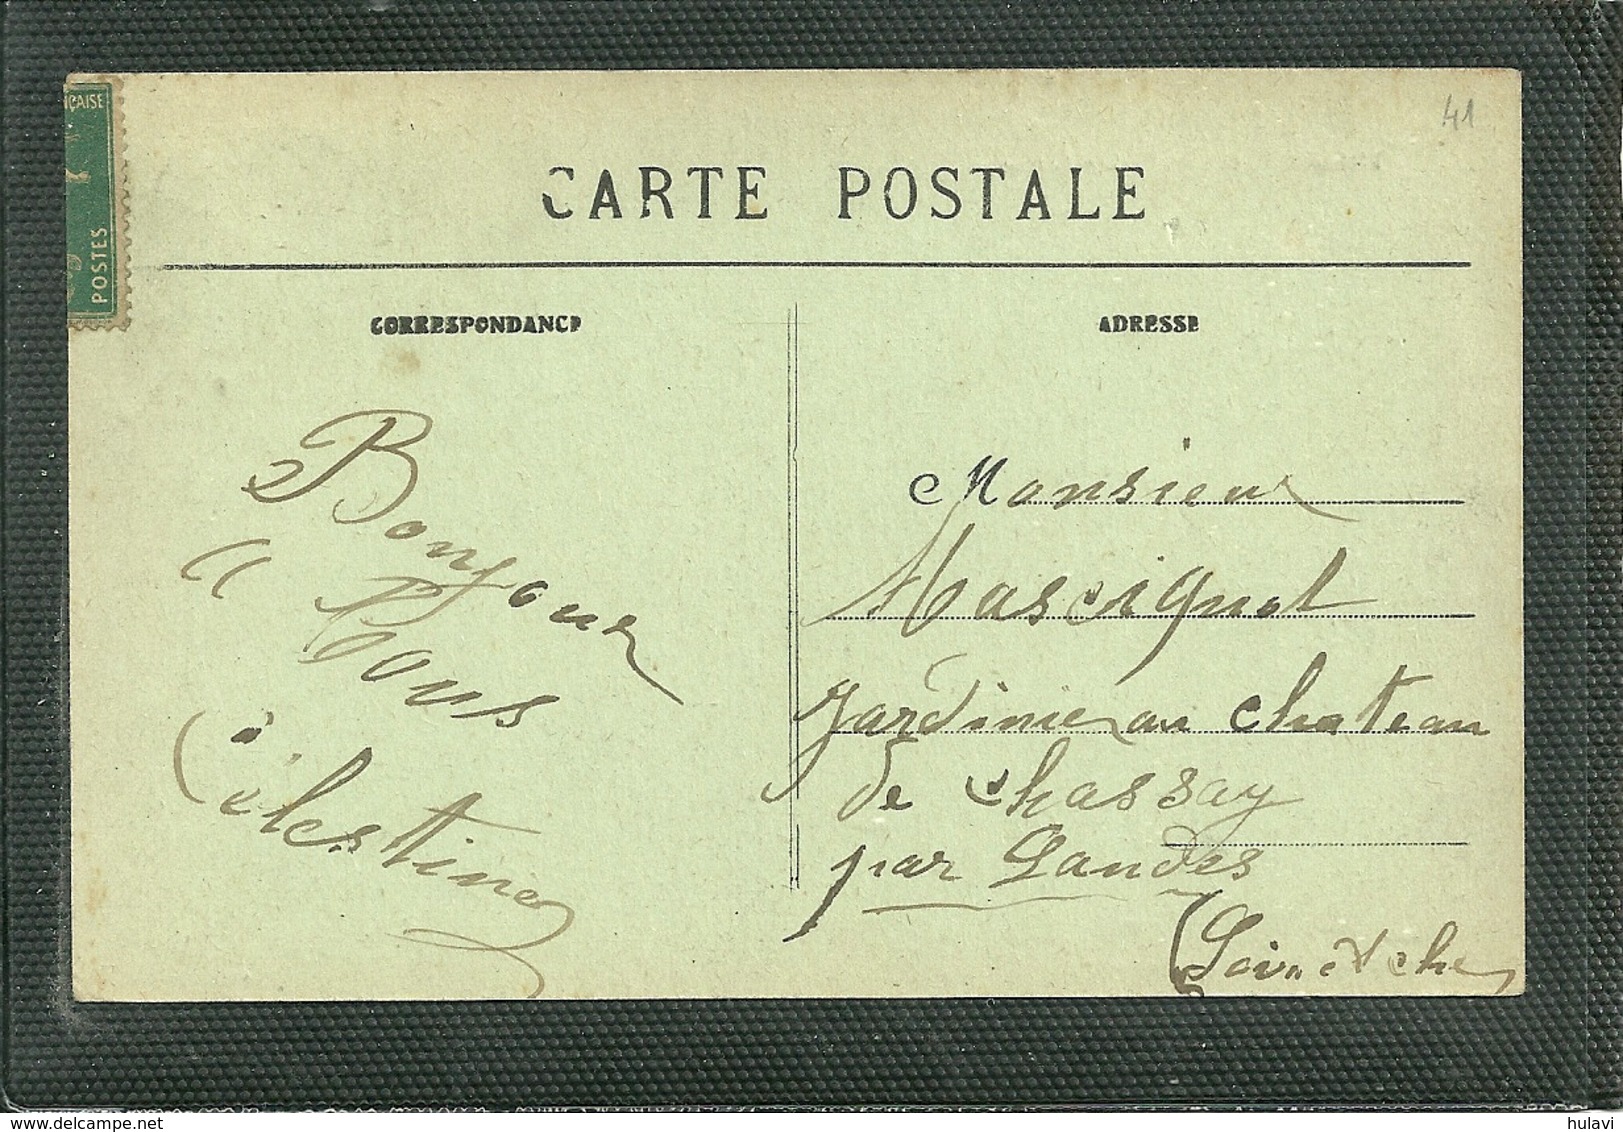 ÇAISE
POSTES
41
CARTE POSTALE
CORRESPONDANCE
ADRESSE
Bonjour
a tous
Célestine
Monsieur
jardinier au chateau
de Chassay
par Landes
(Loir et cher
hulavi